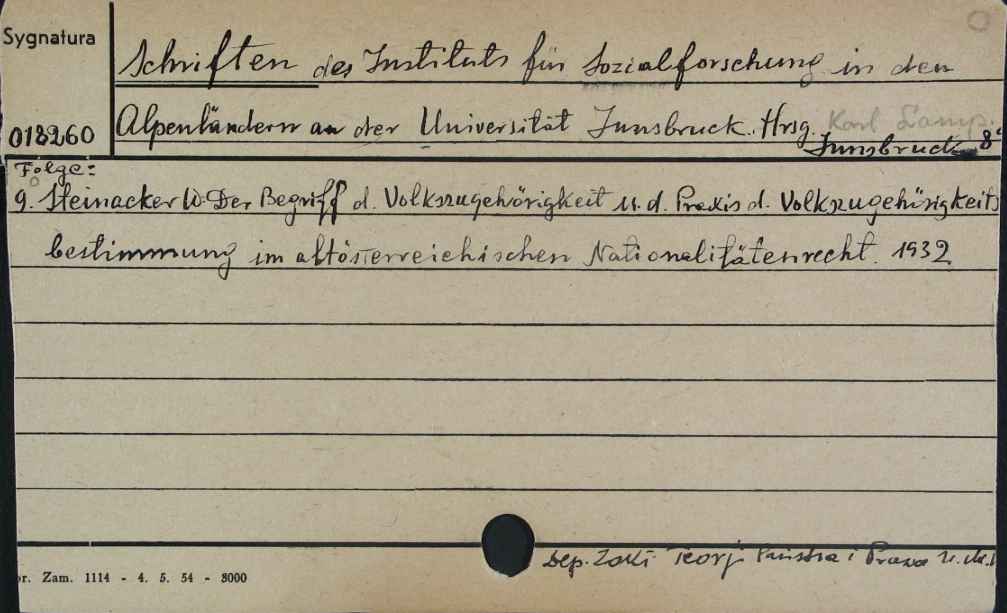 Sygnatura
Schriften des Instituts für Sozialforschung in den
018260 Alpenländern an der Universität Innsbruck. Hrsg. Karl Lamp.
Innsbruck 8°
Folge:
9. Steinacker W. Der Begriff d. Volkszugehörigkeit u. d. Praxis d. Volkszugehörigkeits
bestimmung im altösterreichischen Nationalitätenrecht. 1932
Dep. Zakł. Teorj Państwa i Prawa
r. Zam. 1114 - 4. 5. 54 - 8000